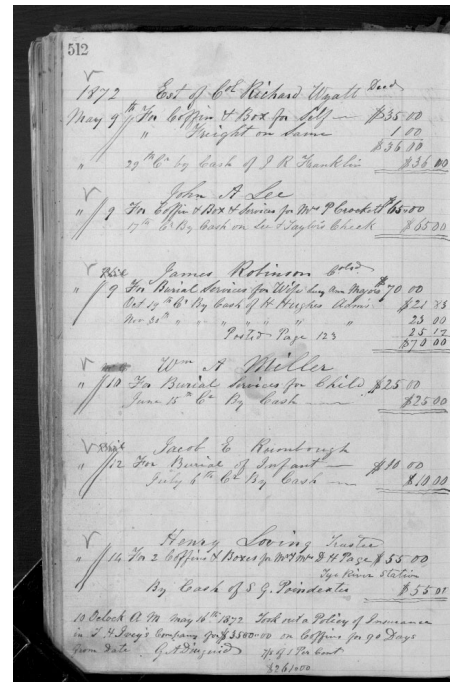 512
1872 Est of Col Richard Wyatt Decd
May 9th For Coffin & Box for Self — $35.00
" Freight on Same 1 00
$36 00
" 29th Cr by Cash of J R Franklin $36 00
John A Lee
" 9 For Coffin & Box & Services for Mrs P Crockett $65.00
17th Cr By Cash on Lee & Taylors Check $65.00
James Robinson Cold
" 9 For Burial Services for Wife Ann $70 00
Oct 19th Cr By Cash of H Hughes Admr $21 83
Nov 30th " " " " " " 23 00
Posted Page 123 25 17
$70 00
Wm A Miller
" 10 For Burial Services for Child $25 00
June 15th Cr By Cash — $25 00
Jacob E Rumbough
" 12 For Burial of Infant — $10 00
July 6th Cr By Cash — $10.00
Henry Loving Trustee
" 14 For 2 Coffins & Boxes for Mr & Mrs D H Page $55 00
Tye River Station
By Cash of S G Poindexter $55 00
10 Oclock A.M. May 16th 1872 Took out a Policy of Insurance
in T. H Ivey's Company for $3500.00 on Coffins for 90 Days
from date G A Diuguid Per Cent
$261.00